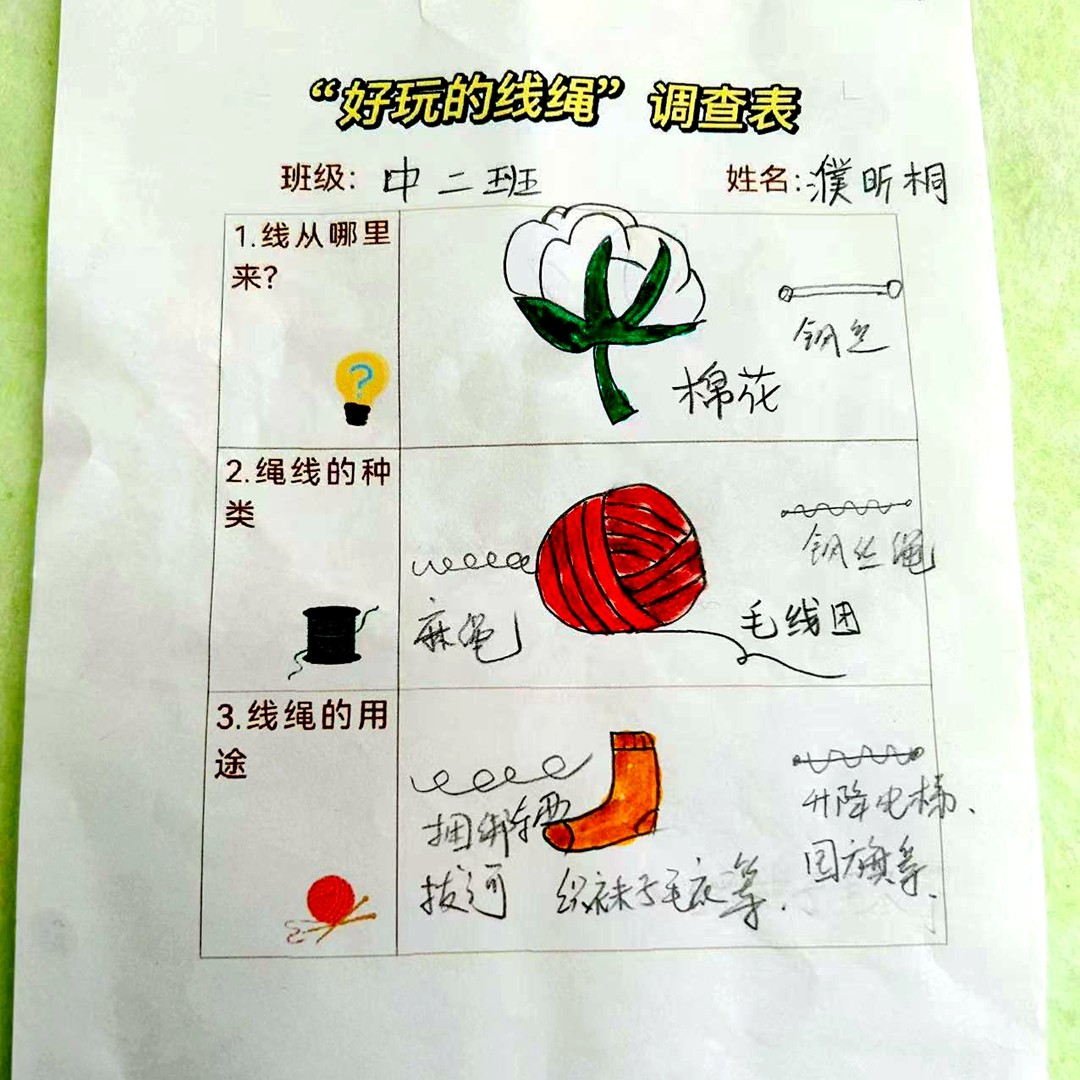 “好玩的线绳”调查表
班级：中二班 姓名：濮昕桐
1.线从哪里
来？
钢丝
棉花
2.绳线的种
类
钢丝绳
麻绳
毛线团
3.线绳的用
途
捆绑东西
拔河
织袜子毛衣等.
升降电梯、
国旗等.